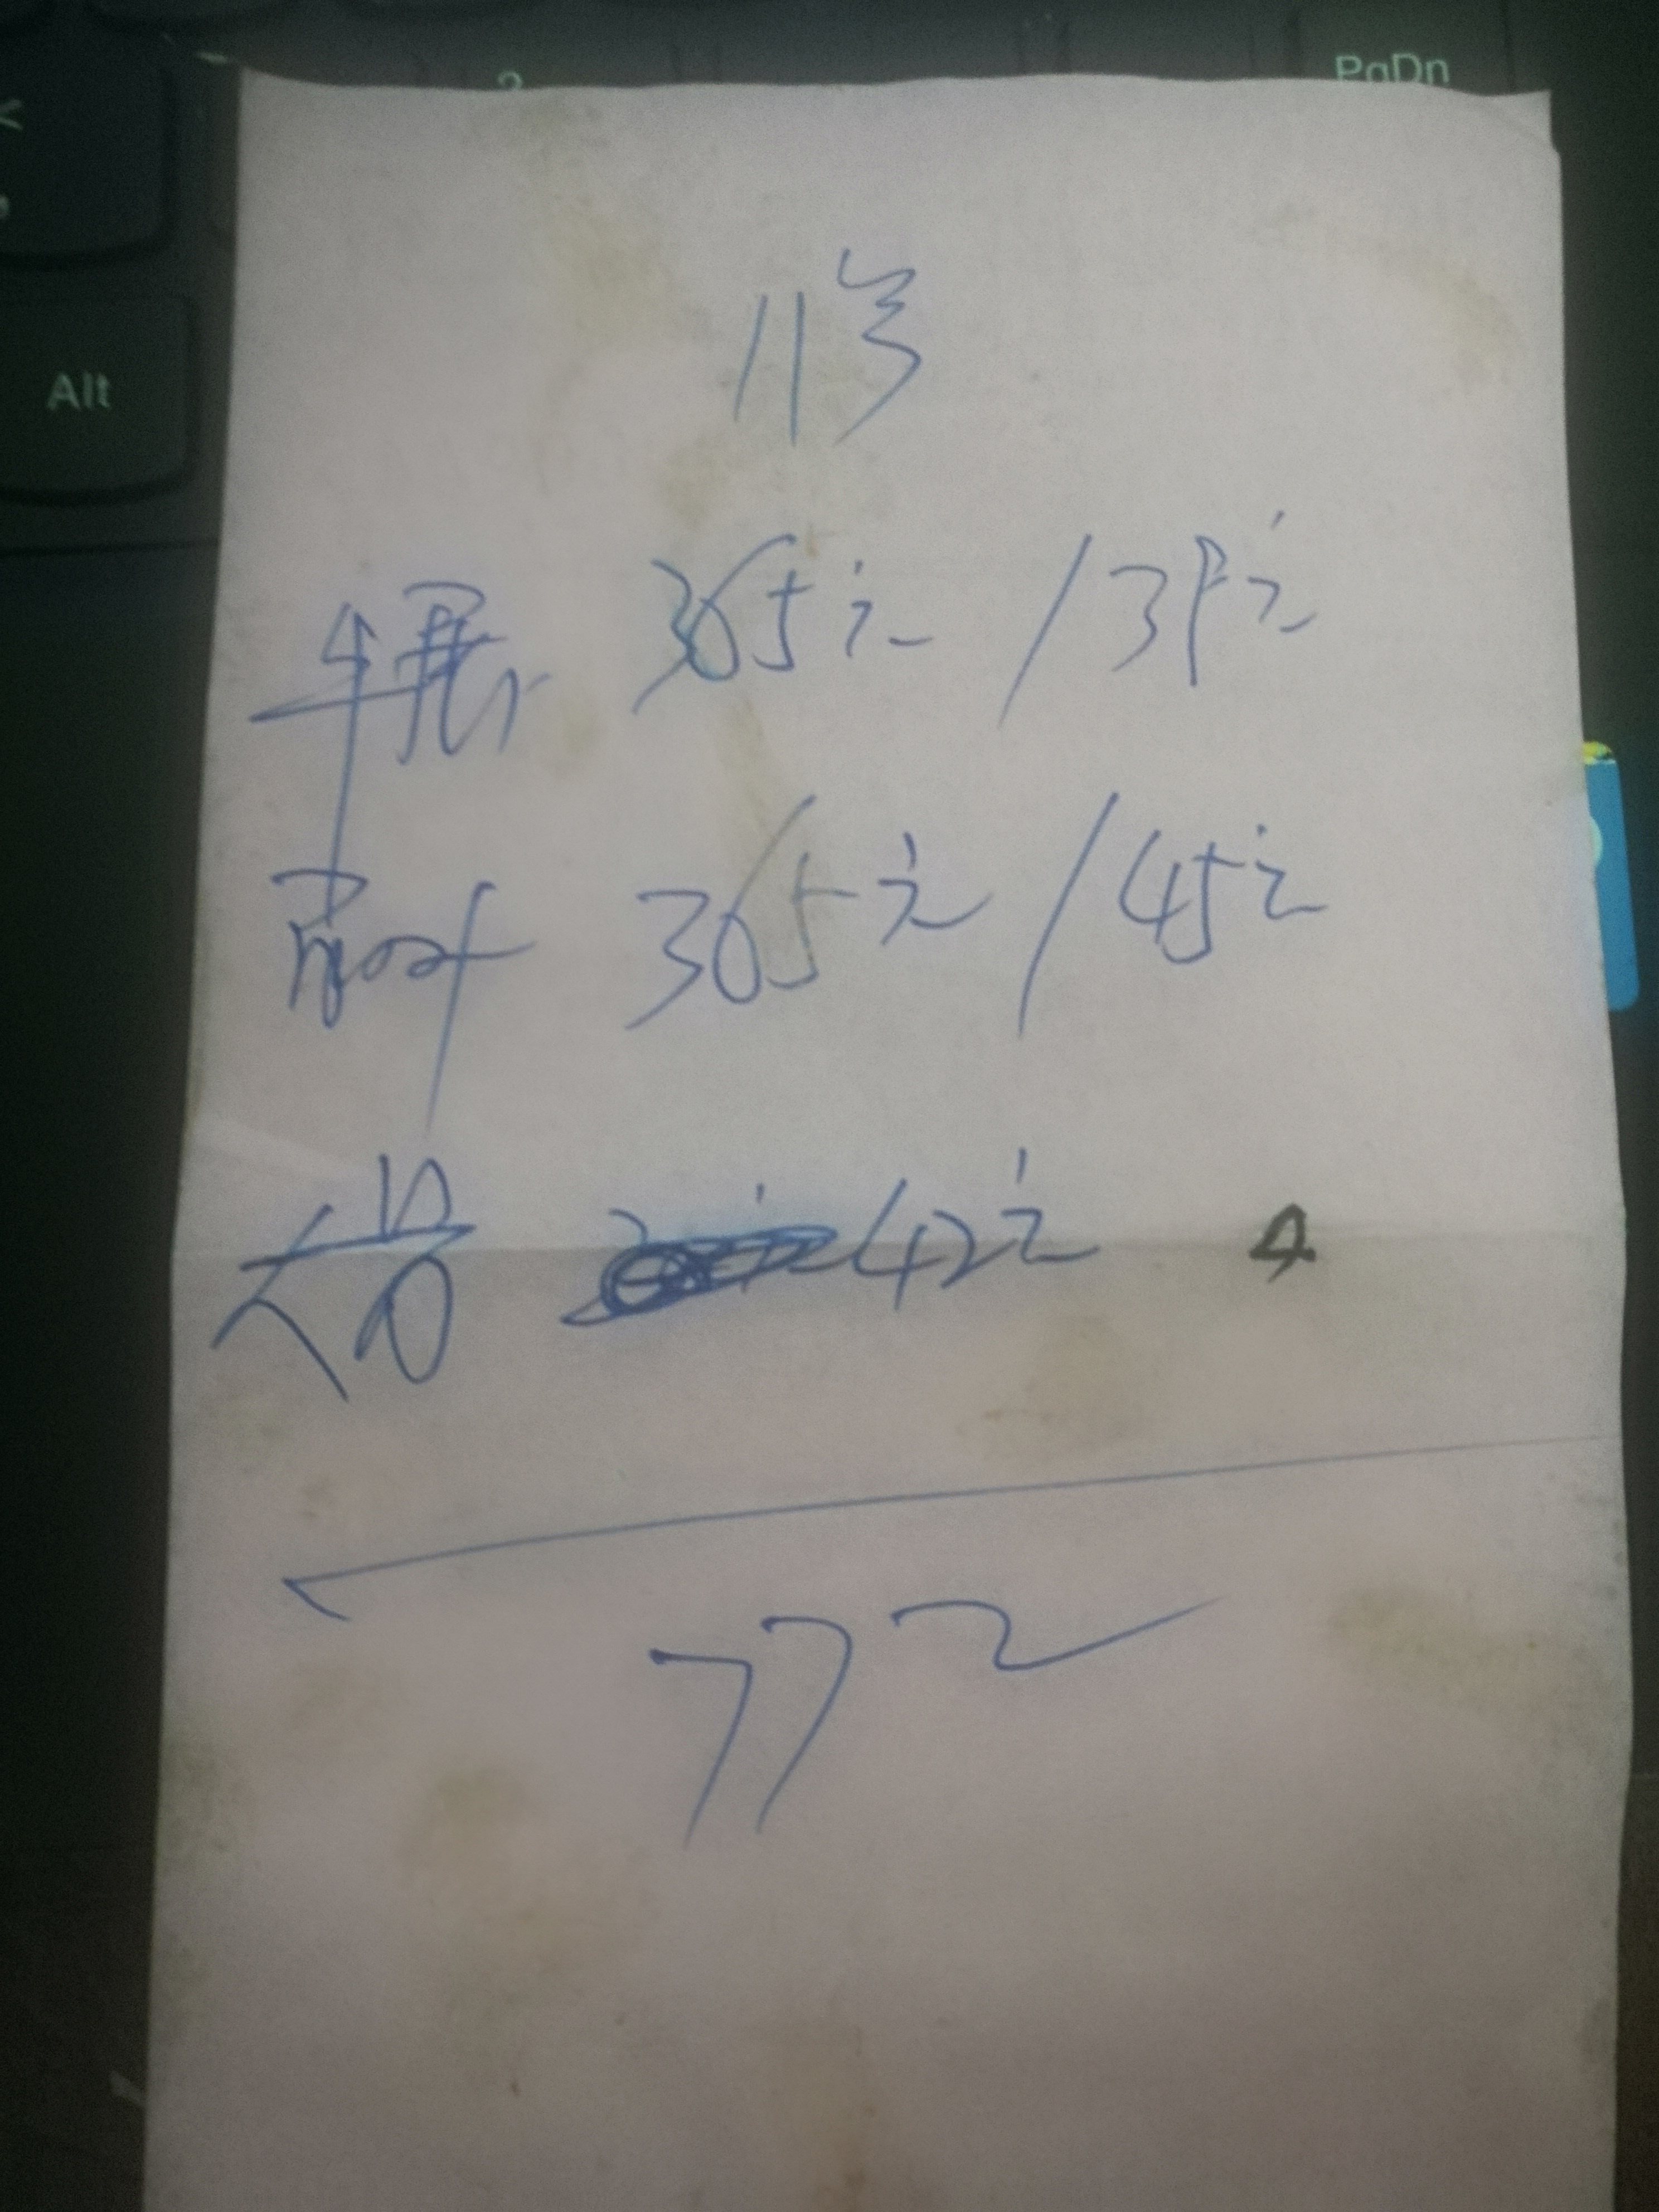 PgDn
Alt
11号
牛展 365元 / 39元
365元 / 45元
大骨 42元
772